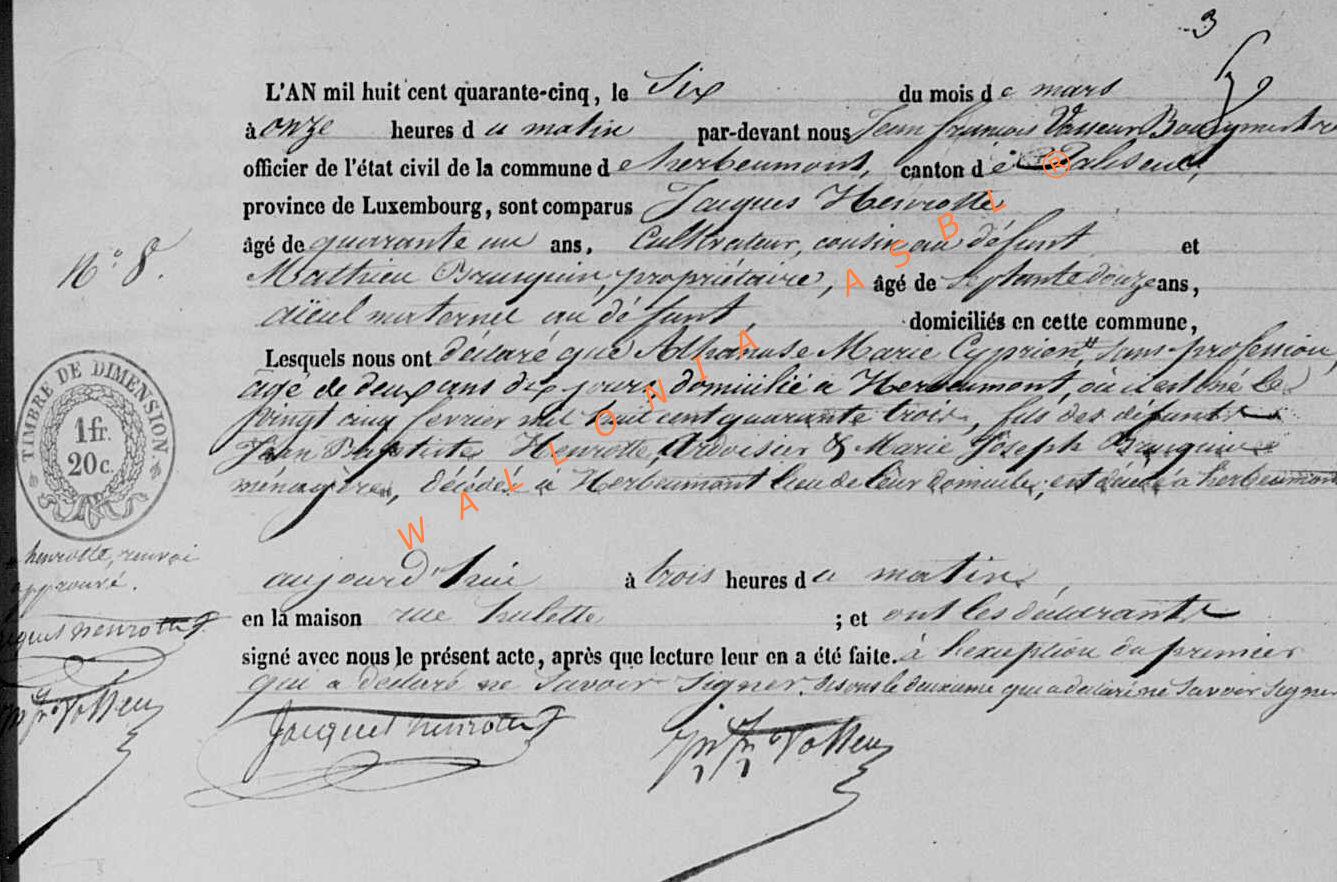 3
L'AN mil huit cent quarante-cinq, le Six du mois de mars
à onze heures du matin par-devant nous Jean françois Bourgmestre
officier de l'état civil de la commune de herbeumont, canton de Paliseul,
province de Luxembourg, sont comparus Jacques Henrotte
âgé de quarante un ans, Cultivateur, cousin au défunt et
N° 8.
Mathieu propriétaire, âgé de septante douze ans,
aïeul maternel au défunt, domiciliés en cette commune,
Lesquels nous ont déclaré que Athanase Marie Cyprien # sans profession,
agé de deux ans dix jours, domicilié à Herbeumont, où il est né le
vingt cinq fevrier mil huit cent quarante trois, fils des défunts
Jean Baptiste Henrotte, & Marie Joseph
ménagère, décédés à Herbeumont lieu de leur domicile, est décédé à herbeumont
TIMBRE DE DIMENSION
1 fr.
20 c.
henrotte, renvoi
approuvé.
aujourd'hui à trois heures du matin
en la maison rue hulette ; et ont les déclarants
signé avec nous le présent acte, après que lecture leur en a été faite. à l'exception du premier
qui a declaré ne Savoir Signer. disons le deuxieme qui a declaré ne Savoir Signer
Jacques henrotte
Jacques henrotte
WALLONIA ASBL ®